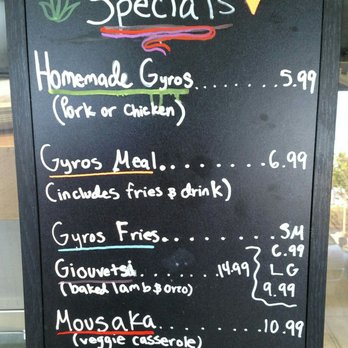 Specials
Homemade Gyros........5.99
(Pork or Chicken)
Gyros Meal..........6.99
(includes fries & drink)
Gyros Fries..........SM
6.99
Giouvetsi..........14.99 LG
(baked lamb & orzo) 9.99
Mousaka..........10.99
(veggie casserole)